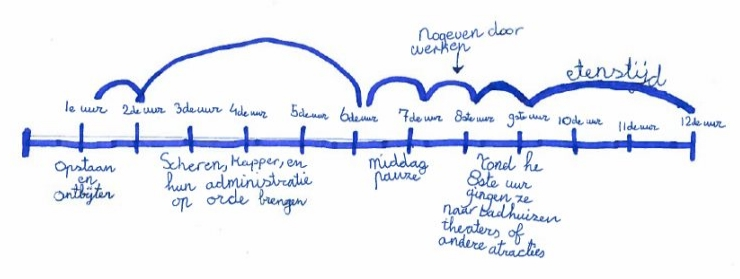 Nogeven door
werken
etenstijd
1e uur 2de uur 3de uur 4de uur 5de uur 6de uur 7de uur 8ste uur 9ste uur 10de uur 11de uur 12de uur
Opstaan
en
ontbijten
Scheren, Kapper, en
hun administratie
op orde brengen
middag
pauze
Rond he
8ste uur
gingen ze
naar badhuizen
theaters of
andere atracties